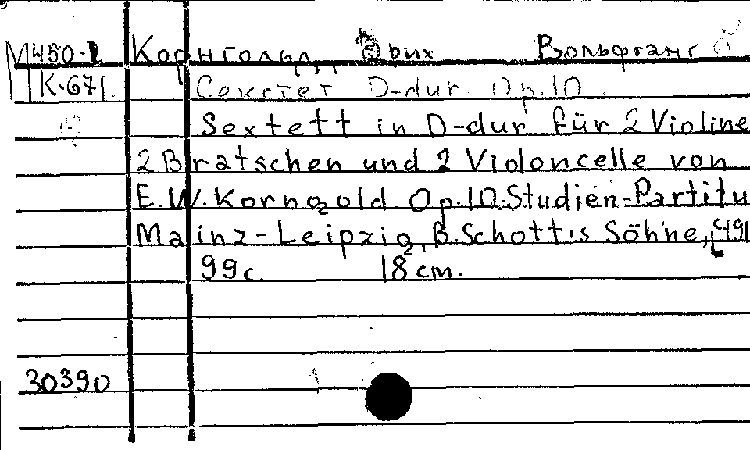 М450-2 Корнгольд, Эрих Вольфганг
К-671. Секстет D-dur. Op.10.
Sextett in D-dur für 2 Violine
2 Bratschen und 2 Violoncelle von
E.W.Korngold. Op.10.Studien-Partitu
Mainz-Leipzig, B.Schott's Söhne, [191
99 с. 18 cm.
30390